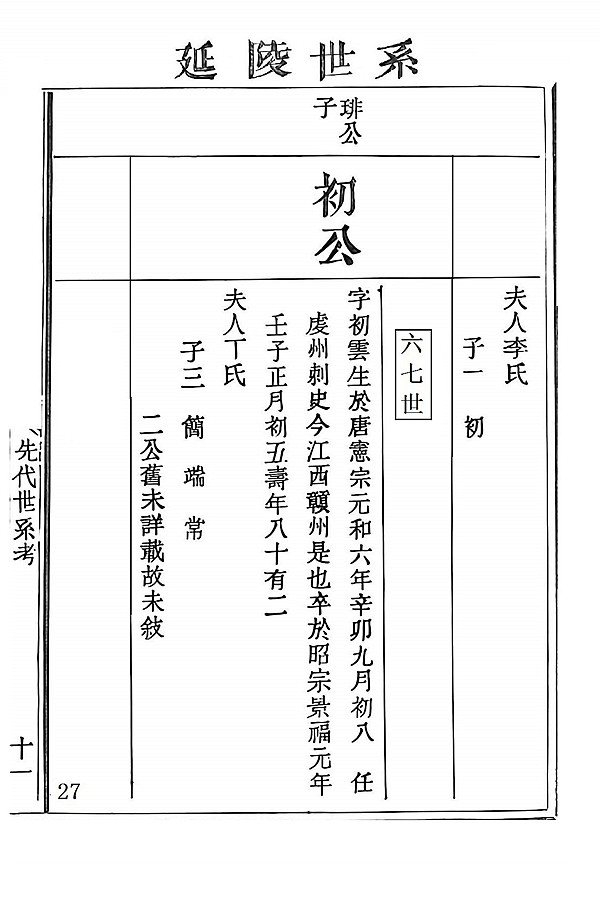 延陵世系
琲公
子
初公
夫人李氏
子一 初
六七世
字初雲生於唐憲宗元和六年辛卯九月初八 任
虔州刺史今江西贛州是也卒於昭宗景福元年
壬子正月初五壽年八十有二
夫人丁氏
子三 簡 端 常
二公舊未詳載故未敍
先代世系考
十一
27